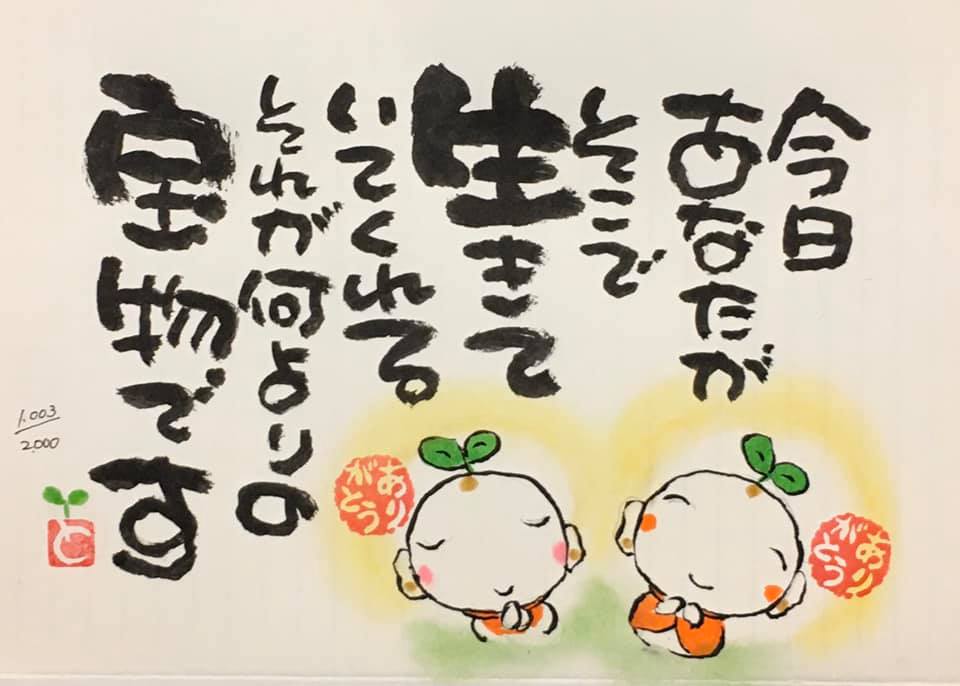 今日
あなたが
そこで
生きて
いてくれる
それが何よりの
宝物です
ありがとう
ありがとう
1.003
2.000
と